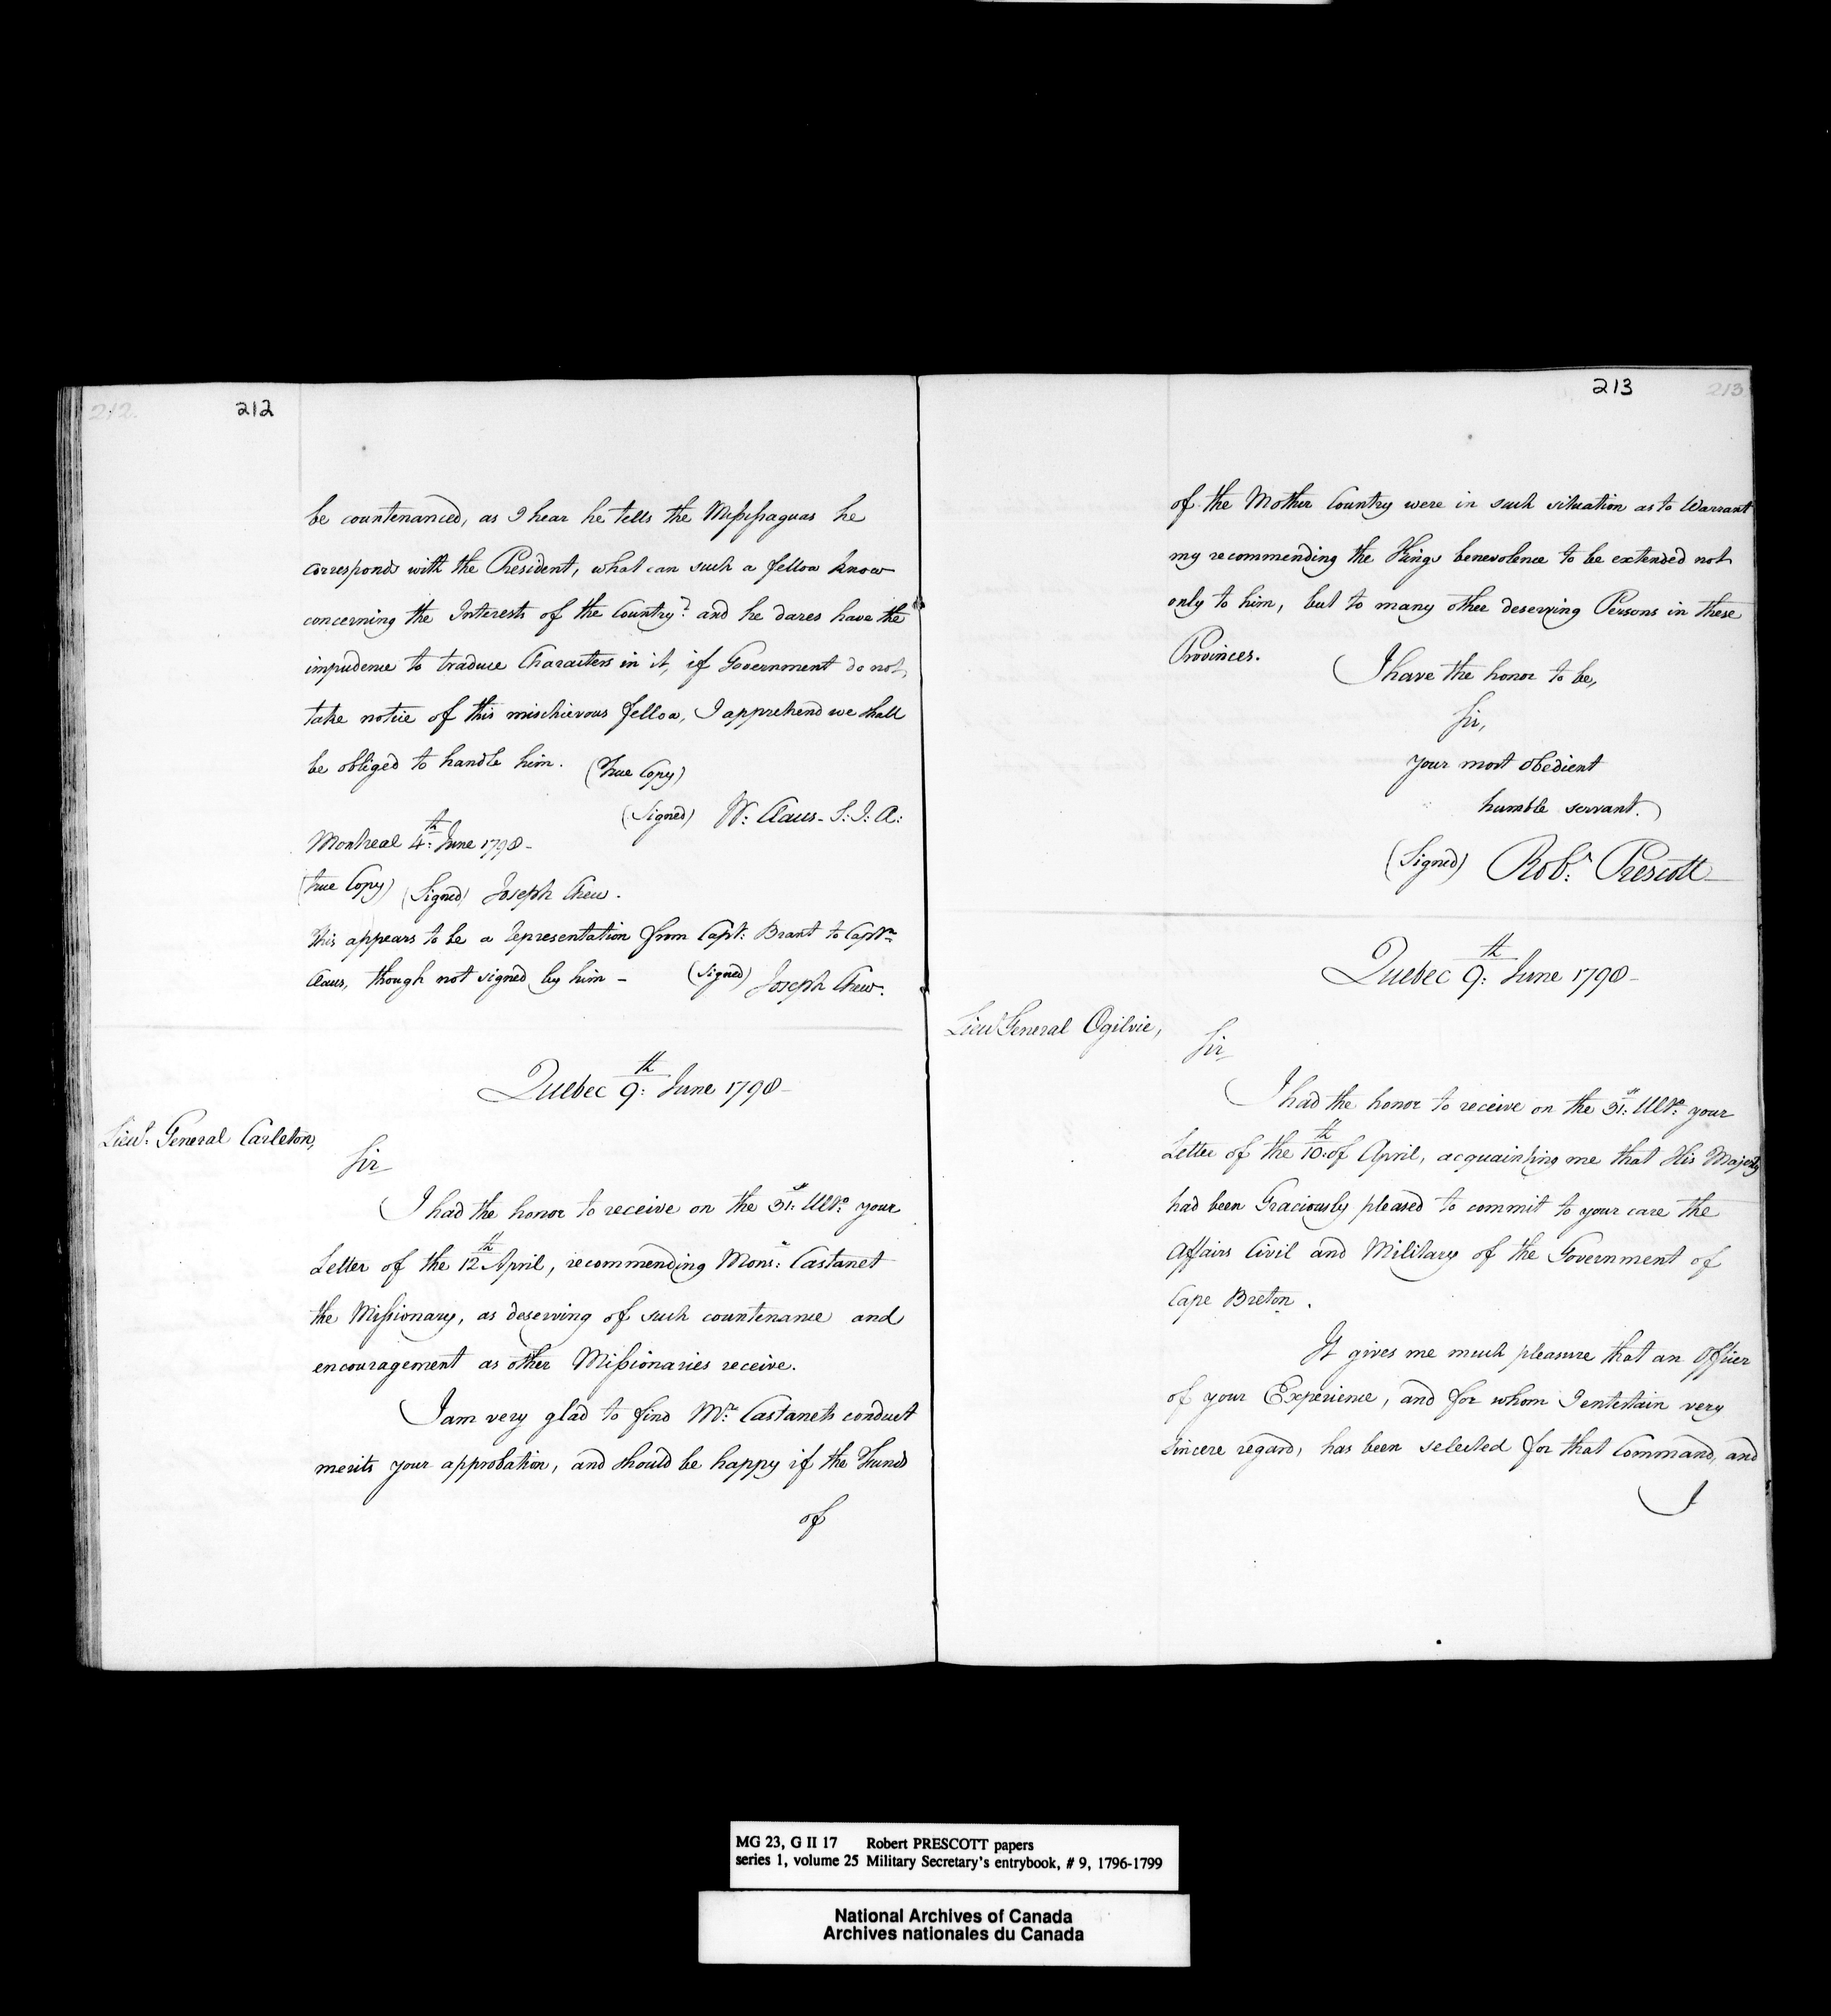 212. 212
be countenanced, as I hear he tells the Missisaguas he
corresponds with the President, what can such a fellow know
concerning the Interests of the Country? and he dares have the
impudence to traduce Characters in it, if Government do not
take notice of this mischievous fellow, I apprehend we shall
be obliged to handle him. (True Copy)
(Signed) W: Claus. S: I: A:
Montreal 4:th June 1798 -
(True Copy) (Signed) Joseph Chew.
This appears to be a representation from Capt: Brant to Captn
Claus, though not signed by him - (signed) Joseph Chew.
Quebec 9:th June 1798 -
Lieut: General Carleton,
Sir
I had the honor to receive on the 31:st Ulto: your
Letter of the 12th April, recommending Monsr: Castanet
the Missionary, as deserving of such countenance and
encouragement as other Missionaries receive.
I am very glad to find Mr: Castanets conduct
merits your approbation, and should be happy if the Funds
of
213 213
of the Mother Country were in such situation as to Warrant
my recommending the Kings benevolence to be extended not
only to him, but to many other deserving Persons in these
Provinces.
I have the honor to be,
Sir,
your most obedient
humble servant.
(Signed) Robt: Prescott
Quebec 9:th June 1798 -
Lieut General Ogilvie,
Sir
I had the honor to receive on the 31:st Ulto: your
Letter of the 10:th of April, acquainting me that His Majesty
had been Graciously pleased to commit to your care the
Affairs Civil and Military of the Government of
Cape Breton.
It gives me much pleasure that an Officer
of your Experience, and for whom I entertain very
sincere regard, has been selected for that Command, and
I
MG 23, G II 17 Robert PRESCOTT papers
series 1, volume 25 Military Secretary's entrybook, # 9, 1796-1799
National Archives of Canada
Archives nationales du Canada